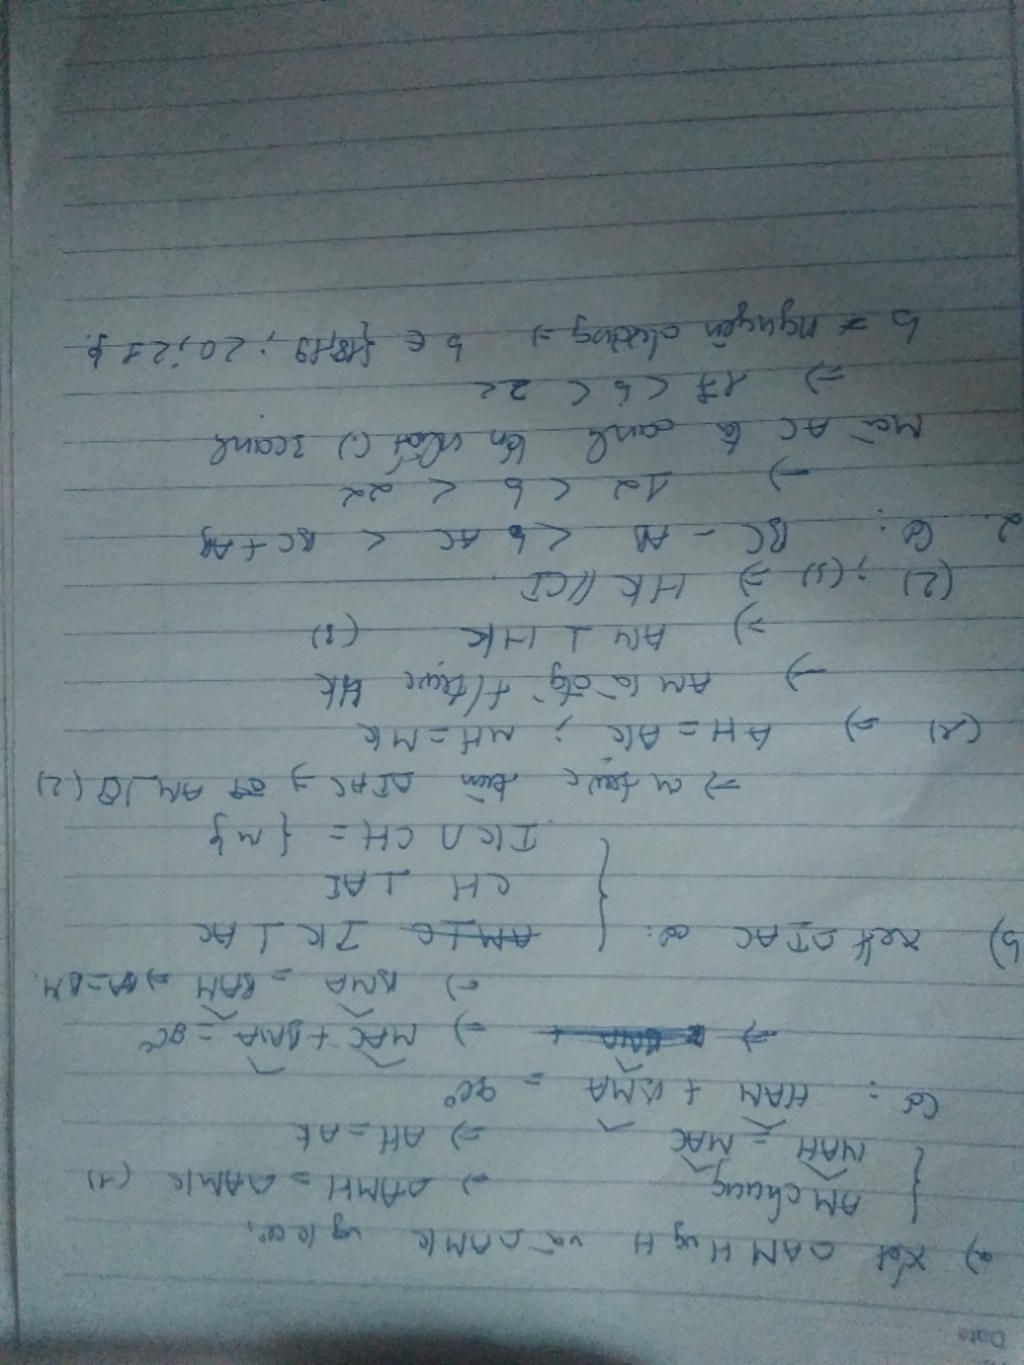 Date
a) Xét △AMH vg H và △AMK vg K có:
{ AM chung
MAH = MAC
=> △AMH = △AMK (1)
=> AH = AK
Có: HAM + BMA = 90°
=> => MAC + BMA = 90°
=> BMA = BAM => BA = BM.
b) Xét △IAC có: { IK ⊥ AC
CH ⊥ AI
IK ∩ CH = {M}
=> M trực tâm △IAC => AM ⊥ CI (2)
(1) => AH = AK ; MH = MK
=> AM là đg t/trực HK
=> AM ⊥ HK (3)
(2) ; (3) => HK // CI
2. Có: BC - AB < b AC < BC + AB
=> 12 < b < 22
Mà AC là cạnh lớn nhất (≠) 3 cạnh
=> 17 < b < 22
b nguyên dương => b ∈ {18; 19 ; 20; 21}.